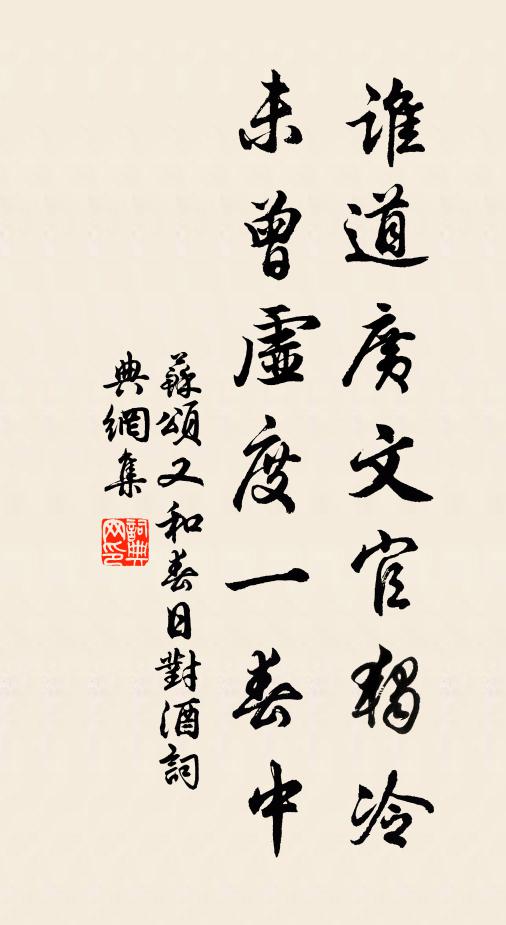 誰道廣文官獨冷
未曾虛度一春中
蘇頌又和春日對酒詞
典網集
詞典網印